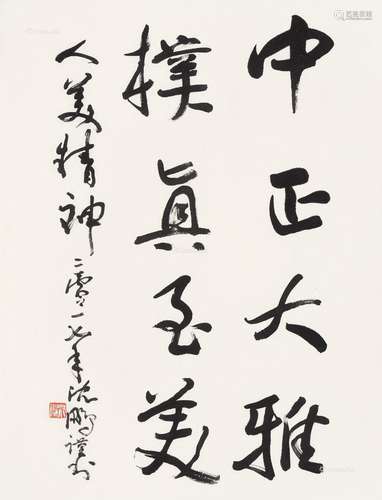 中正大雅
樸真至美
人美精神
二零一七年沈鵬謹書